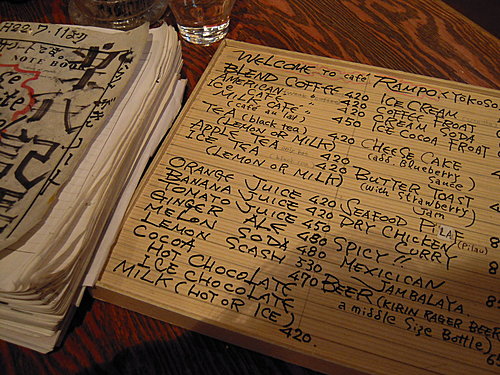 H22.7.11より
NOTE BOOK
WELCOME to café RAMPO, <YOKOSO
BLEND COFFEE 420
AMERICAN 420
ICE COFFEE 420
MILK CAFE.. 450
(café au lait)
TEA (black tea) 420
(LEMON OR MILK)
APPLE TEA 420
ICE TEA 420
(LEMON OR MILK)
ORANGE JUICE 420
BANANA JUICE 420
TOMATO JUICE 420
GINGER ALE 450
MELON SODA 480
LEMON SCASH 480
COCOA 530
HOT CHOCOLATE
ICE CHOCOLATE 470
MILK (HOT OR ICE) 420.
ICE CREAM
COFFEE FROAT
CREAM SODA
ICE COCOA FROAT
CHEESE CAKE
(add. Blueberry
sauce)
BUTTER TOAST
(with strawberry)
Jam
SEAFOOD PILAF
(Pilau)
DRY CHICKEN CURRY
SPICY!!
MEXICICAN
JAMBALAYA.
BEER (KIRIN RAGER BEER
a middle Size Bottle)